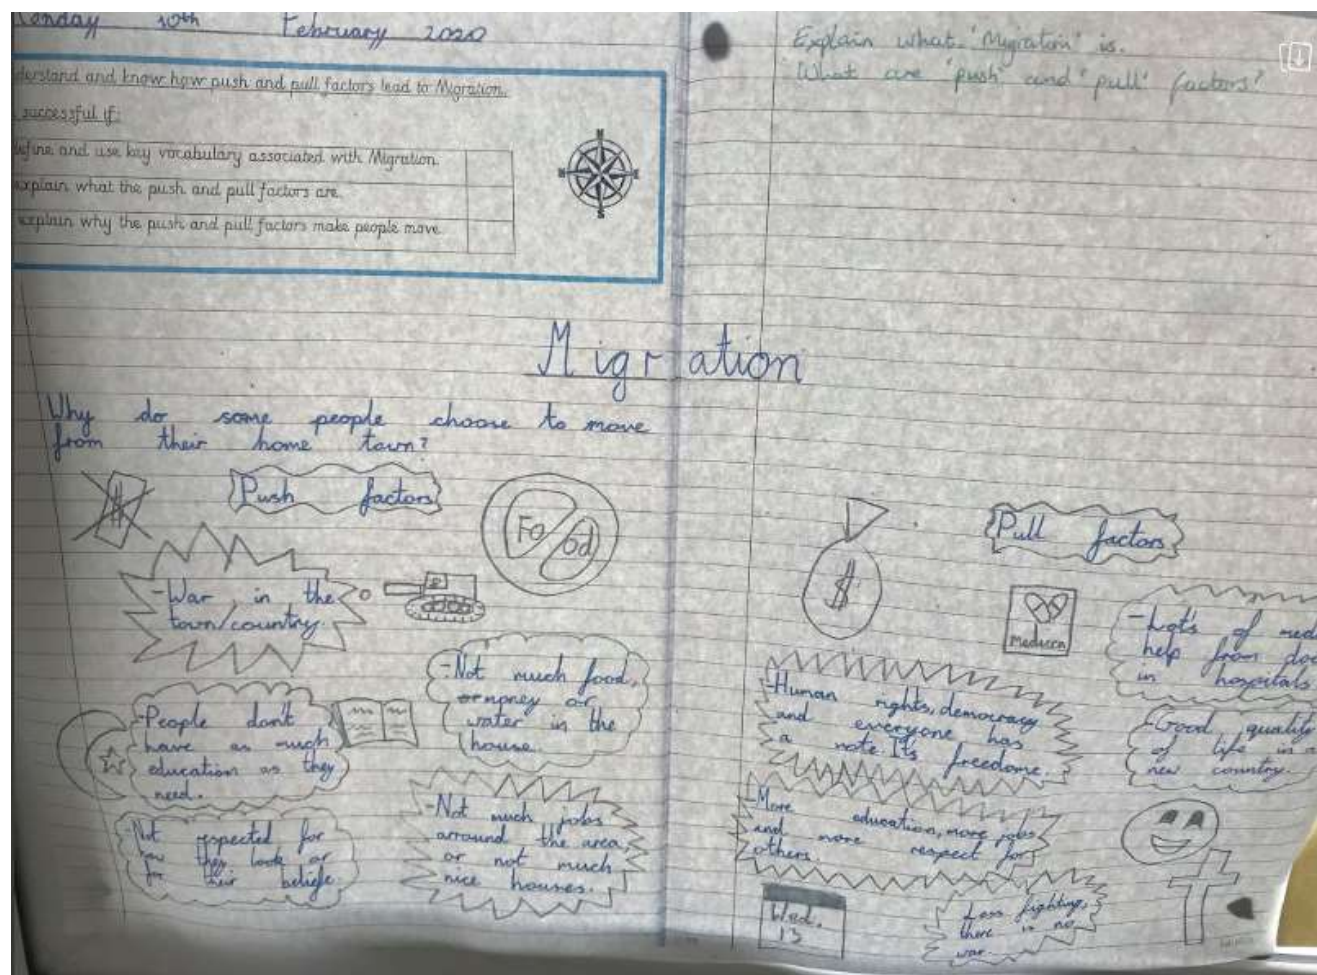 Monday 10th February 2020
derstand and know how push and pull factors lead to Migration.
successful if:
define and use key vocabulary associated with Migration.
explain what the push and pull factors are.
explain why the push and pull factors make people move.
Explain what 'Migration' is.
What are 'push' and 'pull' factors?
Migration
Why do some people choose to move
from their home town?
Push factors
$
Food
-War in the
town/country.
-Not much food,
or money or
water in the
house.
-People don't
have as much
education as they
need.
-Not respected for
how they look or
for their beliefe.
-Not much jobs
arround the area
or not much
nice houses.
Pull factors
$
Meducen
-Lot's of med
help from doc
in hospitals
-Human rights, democracy
and everyone has
a vote. Its freedome.
-Good quality
of life in a
new country.
-More education, more jobs
and more respect for
others.
Wed.
13
Less fighting,
there is no
war.